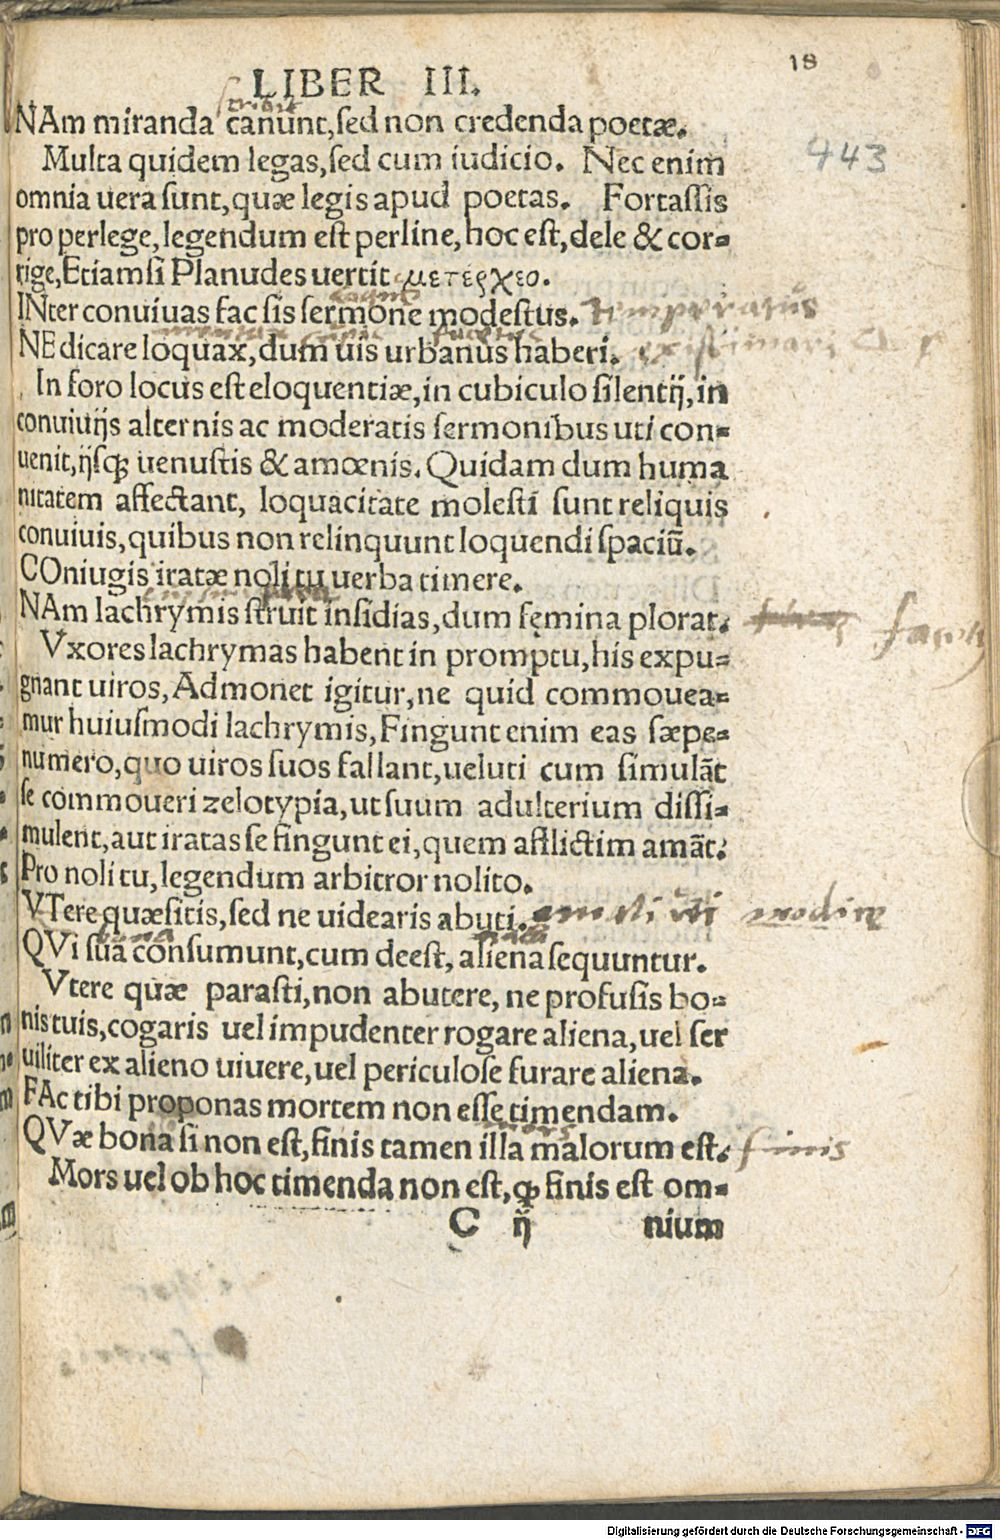 18
LIBER III.
scribit
NAm miranda canunt, sed non credenda poetæ.
443
Multa quidem legas, sed cum iudicio. Nec enim
omnia uera sunt, quæ legis apud poetas. Fortassis
pro perlege, legendum est perline, hoc est, dele & cor=
rige, Etiamsi Planudes uertit μετέρχεο.
INter conuiuas fac sis sermone modestus. temperatus
NE dicare loquax, dum uis urbanus haberi. existimari
In foro locus est eloquentiæ, in cubiculo silentij, in
conuiuijs alternis ac moderatis sermonibus uti con=
uenit, ijsq; uenustis & amœnis. Quidam dum huma
nitatem affectant, loquacitate molesti sunt reliquis
conuiuis, quibus non relinquunt loquendi spaciū.
COniugis iratæ noli tu uerba timere.
NAm lachrymis struit insidias, dum femina plorat.
Vxores lachrymas habent in promptu, his expu=
gnant uiros, Admonet igitur, ne quid commouea=
mur huiusmodi lachrymis, Fingunt enim eas sæpe=
numero, quo uiros suos fallant, ueluti cum simulāt
se commoueri zelotypia, ut suum adulterium dissi=
mulent, aut iratas se fingunt ei, quem afflictim amāt.
Pro noli tu, legendum arbitror nolito.
VTere quæsitis, sed ne uidearis abuti.
bona
QVi sua consumunt, cum deest, aliena sequuntur.
Vtere quæ parasti, non abutere, ne profusis bo=
nis tuis, cogaris uel impudenter rogare aliena, uel ser
uiliter ex alieno uiuere, uel periculose furare aliena.
FAc tibi proponas mortem non esse timendam.
mors
QVæ bona si non est, finis tamen illa malorum est. finis
Mors uel ob hoc timenda non est, q; finis est om=
C ij nium
Digitalisierung gefördert durch die Deutsche Forschungsgemeinschaft - DFG